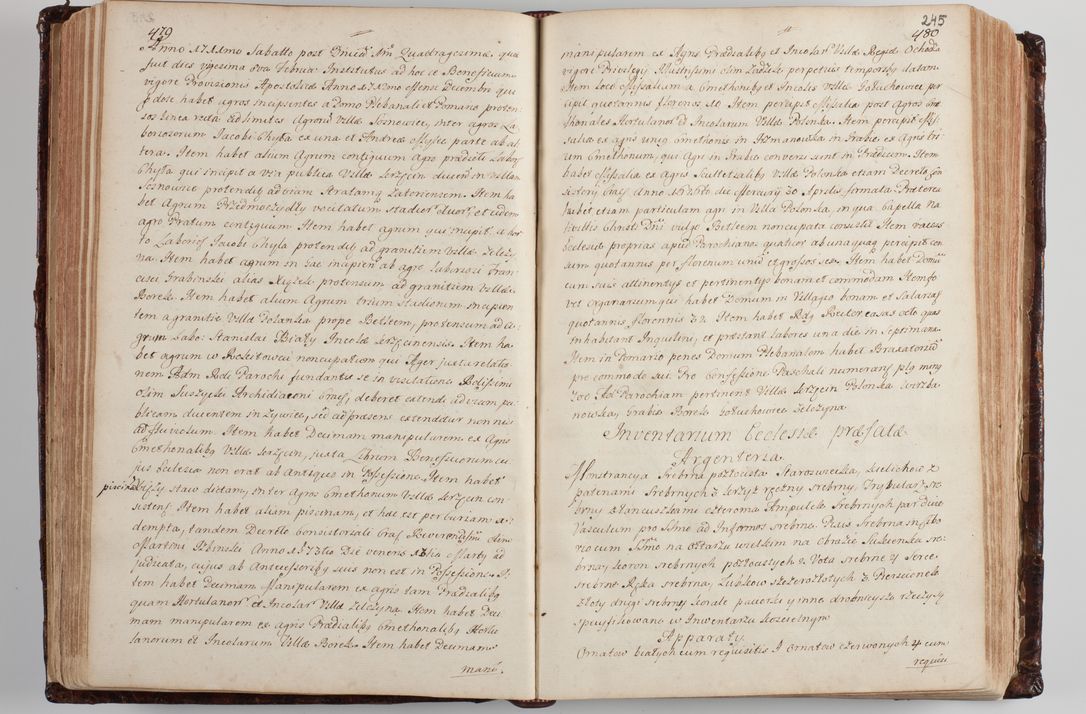 479
Anno 1741mo Sabatto post Cineru Am Quadragesimæ quæ
fuit dies vigesima 8va Februa: Institutus ad hoc æ Beneficium
vigore Provisionis Apostolicæ Anno 1740mo Mense Decembre qui
p dote habet agros incipientes a Domo Plebanali et Pomario proten-
sos linea recta ad limites Agroru Villæ Sosnowice, inter agros La-
boriosorum Jacobi Chyla ex una et Andreæ parte ab al-
tera. Item habet alium Agrum contiguum Agro prædicti Labor:
Chyla qui incipit a via publica Villæ Lerzycin ducend in villam
Sosnowice protendit ad viam Stratam Zatoriensem. Item ha-
bet Agrum Przedmoezydly vocitatum stadior duor, et eidem
agro Pratum contiguum Item habet agrum qui incipit a hor-
to Laborios Jacobi Chyla protendit ad granitiem Villæ Zelczy-
na. Item habet agrum in Lac incipien ab agro Laboriosi Fran-
cisci Grabinski alias Xiązek protensum ad granitiem Villæ
Borek. Item habet alium Agrum trium Stadiorum incipien-
tem a granitie Villæ Polanka prope Betleem, protensum ad a-
grum Labo: Stanislai Biały Incolæ Lerzyinensis. Item ha-
bet agrum w Rokitowcu noncupatum qui Ager juxta relatio-
nem Adm Rdi Parochi fundantis se in visitatione Rdissimi
olim Suszycki Archidiaconi deberet extendi ad viam pu-
blicam ducentem in Zywiec, sed ad præsens extenditur non nisi
ad fluvium. Item habet Decimam manipularem ex Agris
Cmethonalibq Villæ Lerzyin, juxta Librum Beneficiorum cu-
jus Ecclesia non erat ab Antiquo in Possessione. Item habet
piscina staw dictam, inter agros Cmethonum Villæ Lerzyin con-
sistens. Item habet aliam piscinam, et hæc est per curiam a-
dempta, tandem Decreto Consistoriali Reverendissimi olim
Martini Anno 1573tio Die Veneris Martij ad
judicata, cujus ab Antecessoribq suis non est in Possessione. I-
tem habet Decimam Manipularem ex agris tam Prædialibq
quam Hortulanor et Incolar Villæ Zelczyna. Item habet Deci-
mam manipularem ex agris Prædialibq Cmethonalibq Hortu-
lanorum et Incolarum Villæ Borek. Item habet Decimam
mani
245
480
manipularem ex Agris Prædialibq et Incolar Villæ Regiæ Ochodza
vigore Privilegij Illustrissimi olim Zadzik perpetuis temporibq datam.
Item loco Missalium a Cmethonibq et Incolis Villæ Gołuchowice per
cipit quotannis florenos 10 Item percipit Missalia post agros Cme
thonales Hortulanor et Incolarum Villæ Polanka. Item percipit Mis-
salia ex agris unius Cmethonis in Krzmanowka in Grabie ex Agris tri
um Cmethonum, qui Agri in Grabie conversi sunt in Prædium. Item
habet Missalia ex Agris Scultetialibq Villæ Polanka etiam Decreto Con
sistorij Anno 1578vo die Mercurij 30 Aprilis firmata. Præterea
habet etiam particulam agri in Villa Polanka, in qua Capella Na-
tivitatis Christi Dni vulgo Betleem noncupata consistit. Item vaccas
Ecclesiæ proprias apud Parochianos quatuor ab unaquaq percipit cen
sum quotannis per florenum unu et grossos sex. Item habet Domu
cum suis attinentijs et pertinentijs bonam et commodam. Item fo
vet Organarium qui habet Domum in Villagio bonam et Salarias
quotannis florenis 32. Item habet Rdq Rector casas octo, quas
inhabitant Inquilini, et præstant Labores una die in Septimana.
Item in Pomario penes Domum Plebanalem habet Braxatoriu
pro commodo sui. Pro Confessione Paschali numerans plq minq
700 Ad Parochiam pertinent Villæ Lerzycin Polanka Wirzba
nowka, Grabie Borek Gołuchowice Zelczyna
Inventarium Ecclesiæ præfatæ
Argenteria
Monstrancya Srebrna pozłocista Staroswiecka, Kielichow z
patenami Srebrnych 3 Krzyz ręczny srebrny, Trybularz sre
brny z Lancuszkami czteroma Ampułek Srebrnych par dwie
Vasculum pro Ssmo ad Infirmos srebrne. Puszka Srebrna in Cibo
rio cum Ssmo na ołtarzu wielkim na obrazie Sukienka sre-
brna, koron srebrnych pozłocistych 2 Vota srebrne 4 Serce
srebrne Ręka srebrna, Łubkow szczerozłotych 2 Pierscionek
Złoty drugi srebrny korale paciorki y inne drobnieysze rzeczysą
specyfikowane w Inwentarzu koscielnym
Apparaty.
Ornatow białych cum requisitis 9 Ornatow czerwonych 4 cum
requisi